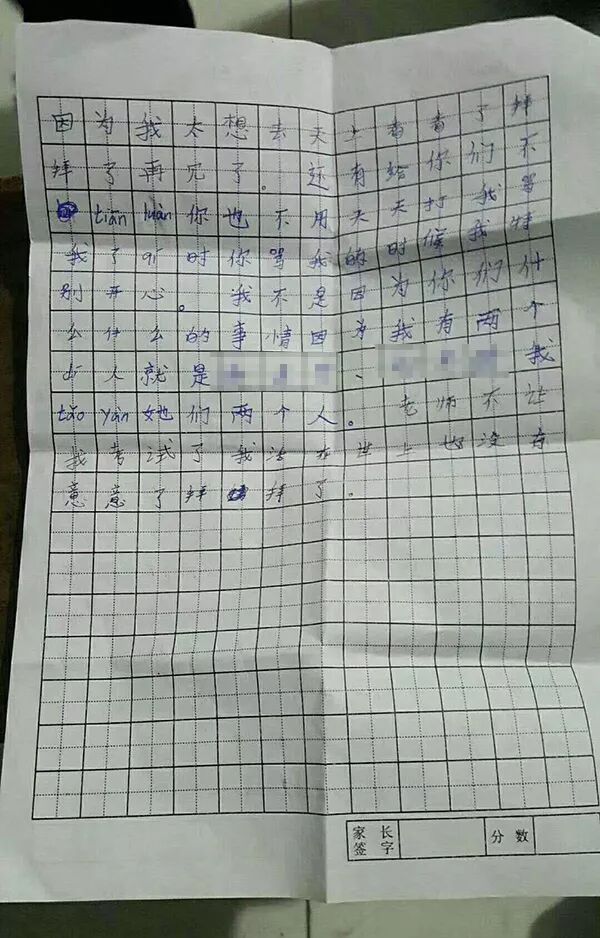 因为我太想去天上看看了拜
拜了再见了。还有给你们不
tiān luàn 你也不用天天打我骂
我了听时你骂我的时候我特
别开心。我不是因为你们什
么什么的事情因为我有两个
人就是、我
tǎo yàn 她们两个人。老师不让
我考试了我活在世上也没有
意意了拜拜了。
家长签字 分数